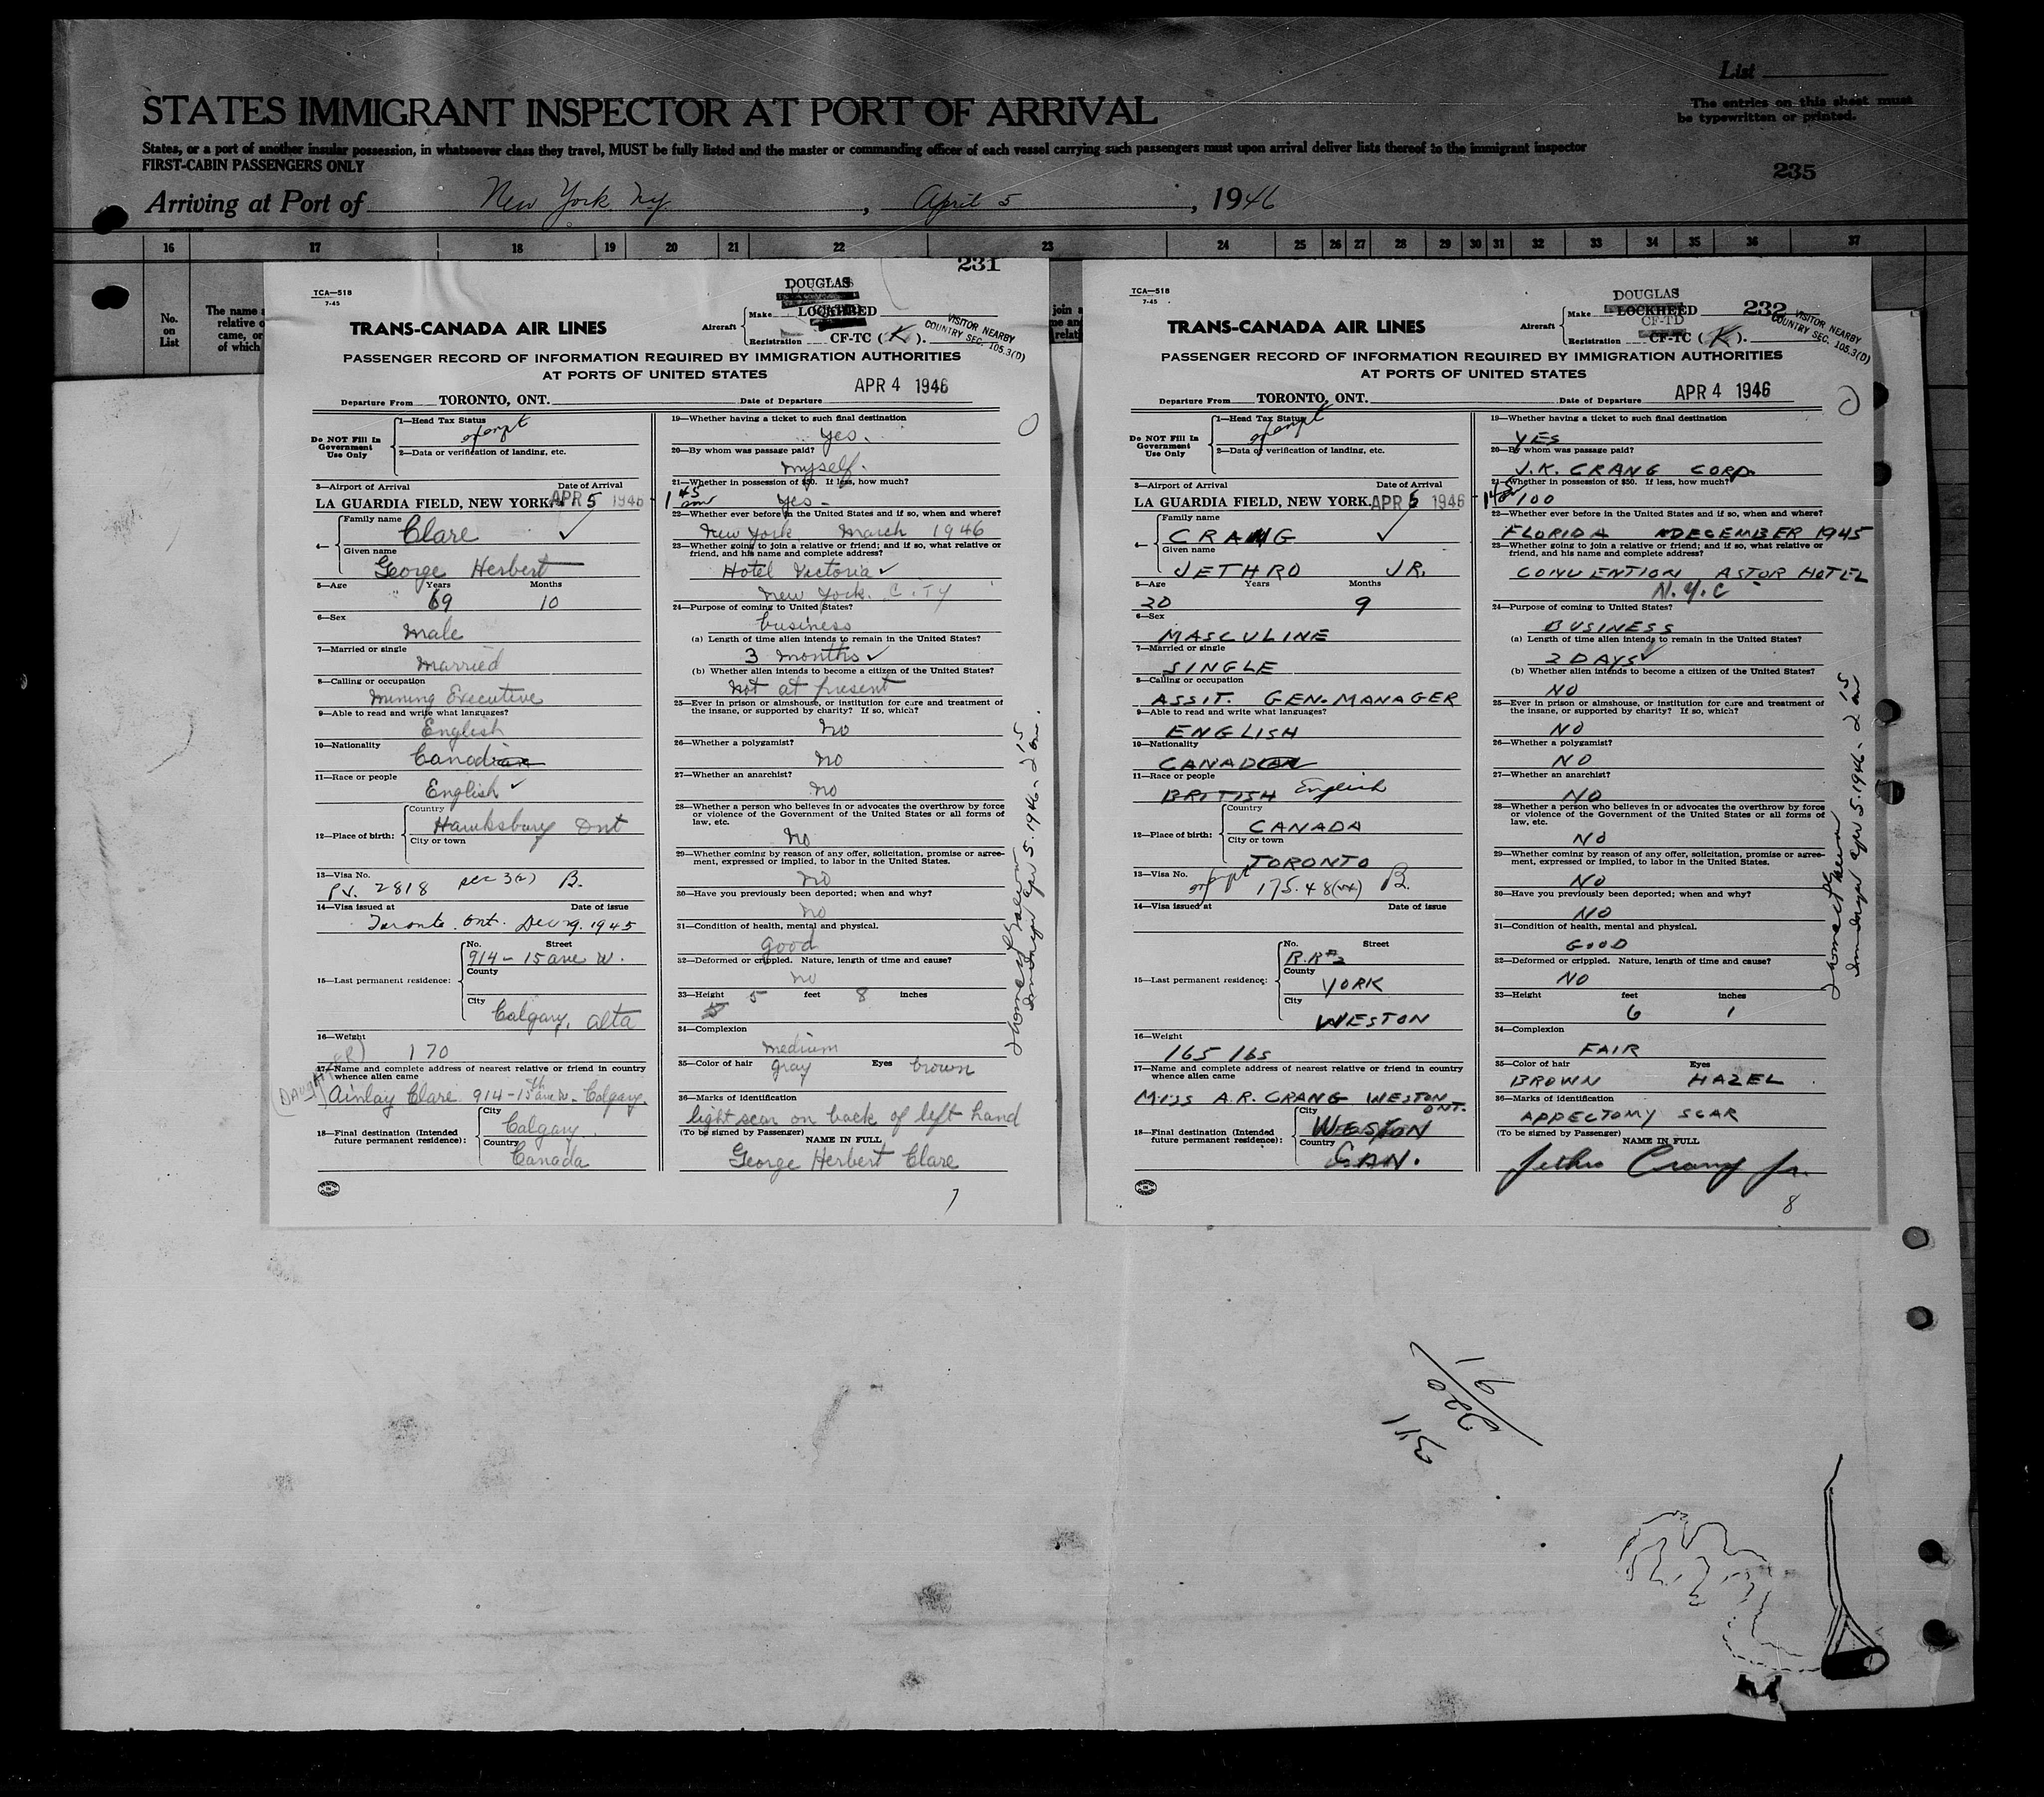 List
STATES IMMIGRANT INSPECTOR AT PORT OF ARRIVAL
The entries on this sheet must
be typewritten or printed.
States, or a port of another insular possession, in whatsoever class they travel, MUST be fully listed and the master or commanding officer of each vessel carrying such passengers must upon arrival deliver lists thereof to the immigrant inspector
FIRST-CABIN PASSENGERS ONLY
235
Arriving at Port of New York N.Y. , April 5 , 1946
16 17 18 19 20 21 22 23 24 25 26 27 28 29 30 31 32 33 34 35 36 37
No.
on
List
The name a
relative o
came, or
of which
join a
me and
relat
231
TCA—518
7-45
DOUGLAS
Make LOCKHEED
TRANS-CANADA AIR LINES
Aircraft
Registration CF-TC ( K ).
VISITOR NEARBY
COUNTRY SEC. 105.3(D)
PASSENGER RECORD OF INFORMATION REQUIRED BY IMMIGRATION AUTHORITIES
AT PORTS OF UNITED STATES
APR 4 1946
Departure From TORONTO, ONT. Date of Departure
Do NOT Fill In
Government
Use Only
1—Head Tax Status
exempt
2—Data or verification of landing, etc.
3—Airport of Arrival Date of Arrival
LA GUARDIA FIELD, NEW YORK. APR 5 1946 - 1 45 am
4—
Family name
Clare
Given name
George Herbert
5—Age Years Months
69 10
6—Sex
Male
7—Married or single
Married
8—Calling or occupation
Mining Executive
9—Able to read and write what languages?
English
10—Nationality
Canadian
11—Race or people
English
12—Place of birth:
Country
Hawksbury Ont
City or town
13—Visa No.
P.V. 2818 sec 3(2) B.
14—Visa issued at Date of issue
Toronto. Ont. Dec 29. 1945
15—Last permanent residence:
No. Street
914 - 15 ave W.
County
City
Calgary, Alta
16—Weight
170
17—Name and complete address of nearest relative or friend in country
whence alien came
(DAUGHTER)
Ainlay Clare 914 - 15th ave W - Calgary.
18—Final destination (Intended
future permanent residence):
City
Calgary
Country
Canada
19—Whether having a ticket to such final destination
Yes.
20—By whom was passage paid?
Myself.
21—Whether in possession of $50. If less, how much?
Yes -
22—Whether ever before in the United States and if so, when and where?
New York March 1946
23—Whether going to join a relative or friend; and if so, what relative or
friend, and his name and complete address?
Hotel Victoria
New York. CITY
24—Purpose of coming to United States?
business
(a) Length of time alien intends to remain in the United States?
3 months
(b) Whether alien intends to become a citizen of the United States?
Not at present
25—Ever in prison or almshouse, or institution for care and treatment of
the insane, or supported by charity? If so, which?
No
26—Whether a polygamist?
No
27—Whether an anarchist?
No
28—Whether a person who believes in or advocates the overthrow by force
or violence of the Government of the United States or all forms of
law, etc.
No
29—Whether coming by reason of any offer, solicitation, promise or agree-
ment, expressed or implied, to labor in the United States.
No
30—Have you previously been deported; when and why?
No
31—Condition of health, mental and physical.
good
32—Deformed or crippled. Nature, length of time and cause?
no
33—Height 5 feet 8 inches
34—Complexion
Medium
35—Color of hair gray Eyes brown
36—Marks of identification
light scar on back of left hand
(To be signed by Passenger)
NAME IN FULL
George Herbert Clare
7
Apr 5. 1946 - 2 15 am.
232
TCA—518
7-45
DOUGLAS
Make LOCKHEED
CF-TD
TRANS-CANADA AIR LINES
Aircraft
Registration CF-TC ( K ).
VISITOR NEARBY
COUNTRY SEC. 105.3(D)
PASSENGER RECORD OF INFORMATION REQUIRED BY IMMIGRATION AUTHORITIES
AT PORTS OF UNITED STATES
APR 4 1946
Departure From TORONTO, ONT. Date of Departure
Do NOT Fill In
Government
Use Only
1—Head Tax Status
exempt
2—Data or verification of landing, etc.
3—Airport of Arrival Date of Arrival
LA GUARDIA FIELD, NEW YORK. APR 5 1946 - 1 45
4—
Family name
CRANG
Given name
JETHRO JR.
5—Age Years Months
20 9
6—Sex
MASCULINE
7—Married or single
SINGLE
8—Calling or occupation
ASSIT. GEN. MANAGER
9—Able to read and write what languages?
ENGLISH
10—Nationality
CANADIAN
11—Race or people
BRITISH English
12—Place of birth:
Country
CANADA
City or town
TORONTO
13—Visa No.
exempt 175.48 B.
14—Visa issued at Date of issue
15—Last permanent residence:
No. Street
R.R #2
County
YORK
City
WESTON
16—Weight
165 lbs
17—Name and complete address of nearest relative or friend in country
whence alien came
MISS A.R. CRANG WESTON ONT.
18—Final destination (Intended
future permanent residence):
City
WESTON
Country
CAN.
19—Whether having a ticket to such final destination
YES
20—By whom was passage paid?
J.K. CRANG CORP.
21—Whether in possession of $50. If less, how much?
100
22—Whether ever before in the United States and if so, when and where?
FLORIDA DECEMBER 1945
23—Whether going to join a relative or friend; and if so, what relative or
friend, and his name and complete address?
CONVENTION ASTOR HOTEL
N.Y.C
24—Purpose of coming to United States?
BUSINESS
(a) Length of time alien intends to remain in the United States?
2 DAYS
(b) Whether alien intends to become a citizen of the United States?
NO
25—Ever in prison or almshouse, or institution for care and treatment of
the insane, or supported by charity? If so, which?
NO
26—Whether a polygamist?
NO
27—Whether an anarchist?
NO
28—Whether a person who believes in or advocates the overthrow by force
or violence of the Government of the United States or all forms of
law, etc.
NO
29—Whether coming by reason of any offer, solicitation, promise or agree-
ment, expressed or implied, to labor in the United States.
NO
30—Have you previously been deported; when and why?
NO
31—Condition of health, mental and physical.
GOOD
32—Deformed or crippled. Nature, length of time and cause?
NO
33—Height feet inches
6 1
34—Complexion
FAIR
35—Color of hair Eyes
BROWN HAZEL
36—Marks of identification
APPECTOMY SCAR
(To be signed by Passenger)
NAME IN FULL
Jethro Crang Jr.
8
Apr 5. 1946 - 2 15 am